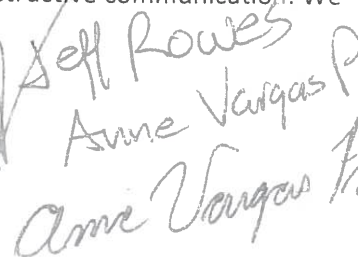 structive communication. We
Jeff Rowes
Anne Vargas P
Anne Vargas